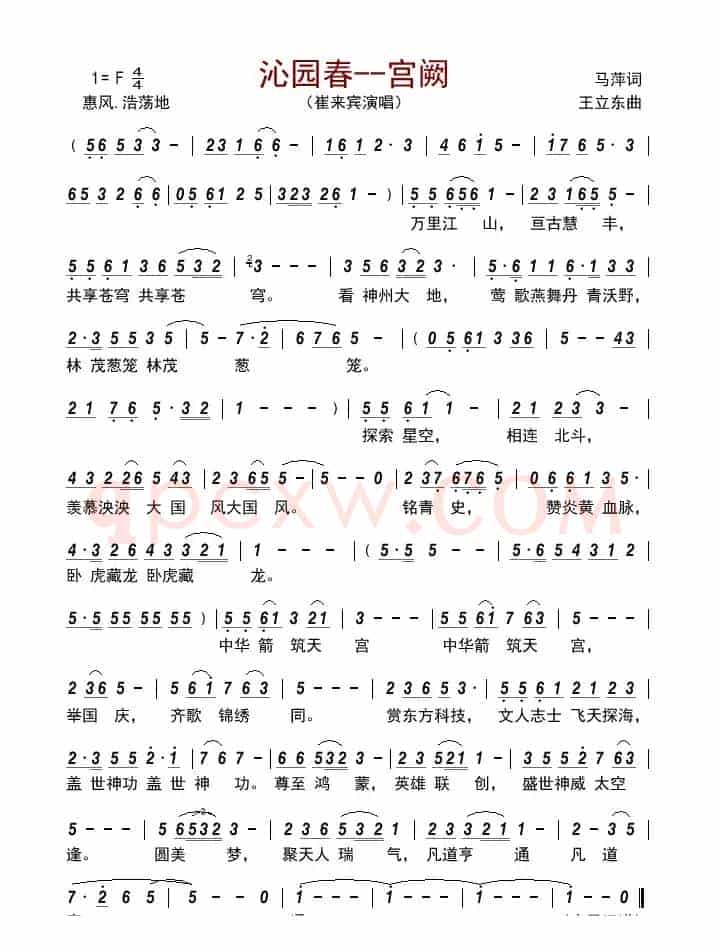 沁园春--宫阙
1= F 4/4
马萍词
惠风.浩荡地
（崔来宾演唱）
王立东曲
( 5 6 5 3 3 - | 2 3 1 6 6 - | 1 6 1 2 · 3 | 4 6 1 5 - | 1 7 6 5 · 3 |
6 5 3 2 6 6 | 0 5 6 1 2 5 | 3 2 3 2 6 1 - ) | 5 5 6 5 6 1 - | 2 3 1 6 5 5 - |
万里江 山， 亘古慧 丰，
5 5 6 1 3 6 5 3 2 | 2 3 - - - | 3 5 6 3 2 3 - | 5 · 6 1 1 6 · 1 3 |
共享苍穹 共享苍 穹。 看 神州大 地， 莺 歌燕舞丹 青沃野，
2 · 3 5 5 3 5 | 5 - 7 · 2 | 6 7 6 - - | ( 0 5 6 1 3 3 6 | 5 - - 4 3 |
林 茂葱笼 林茂 葱 笼。
2 1 7 6 5 · 3 2 | 1 - - - ) | 5 5 6 1 1 - | 2 1 2 3 3 - |
探索 星空， 相连 北斗，
4 3 2 2 6 5 4 3 | 2 3 6 5 5 - | 5 - - - | 2 3 7 6 7 6 5 | 0 6 6 1 3 5 · |
羡慕泱泱 大 国 风大国 风。 铭青 史， 赞炎黄 血脉，
4 · 3 2 6 4 3 3 2 1 | 1 - - - | ( 5 · 5 5 - | 5 - 0 6 5 4 3 1 2 |
卧 虎藏龙 卧虎藏 龙。
5 · 5 5 5 5 5 5 5 ) | 5 5 6 1 3 2 1 | 3 - - - | 5 5 6 1 7 6 3 | 5 - - - |
中华 箭 筑天 宫 中华箭 筑天 宫，
2 3 6 5 - | 5 6 1 7 6 3 | 5 - - - | 2 3 6 5 3 | 2 2 5 6 1 6 1 2 3 |
举国 庆， 齐歌 锦绣 同。 赏东方科技， 文人志士 飞天探海，
2 · 3 5 5 2 · 1 | 7 6 7 - | 6 6 5 3 2 3 - | 2 3 5 3 2 1 - | 3 5 2 7 6 6 |
盖 世神功 盖 世 神 功。尊至 鸿 蒙，英雄 联 创，盛世神威 太空
5 - - - | 5 6 5 3 2 3 - | 2 3 6 5 3 5 - | 2 3 3 2 1 1 - | 2 3 5 |
逢。 圆美 梦， 聚天人 瑞 气，凡道亨 通 凡 道
7 · 2 6 5 | 5 - - - | 5 - - 0 | 1 - - - | 1 - - - | 1 - - 0 ‖